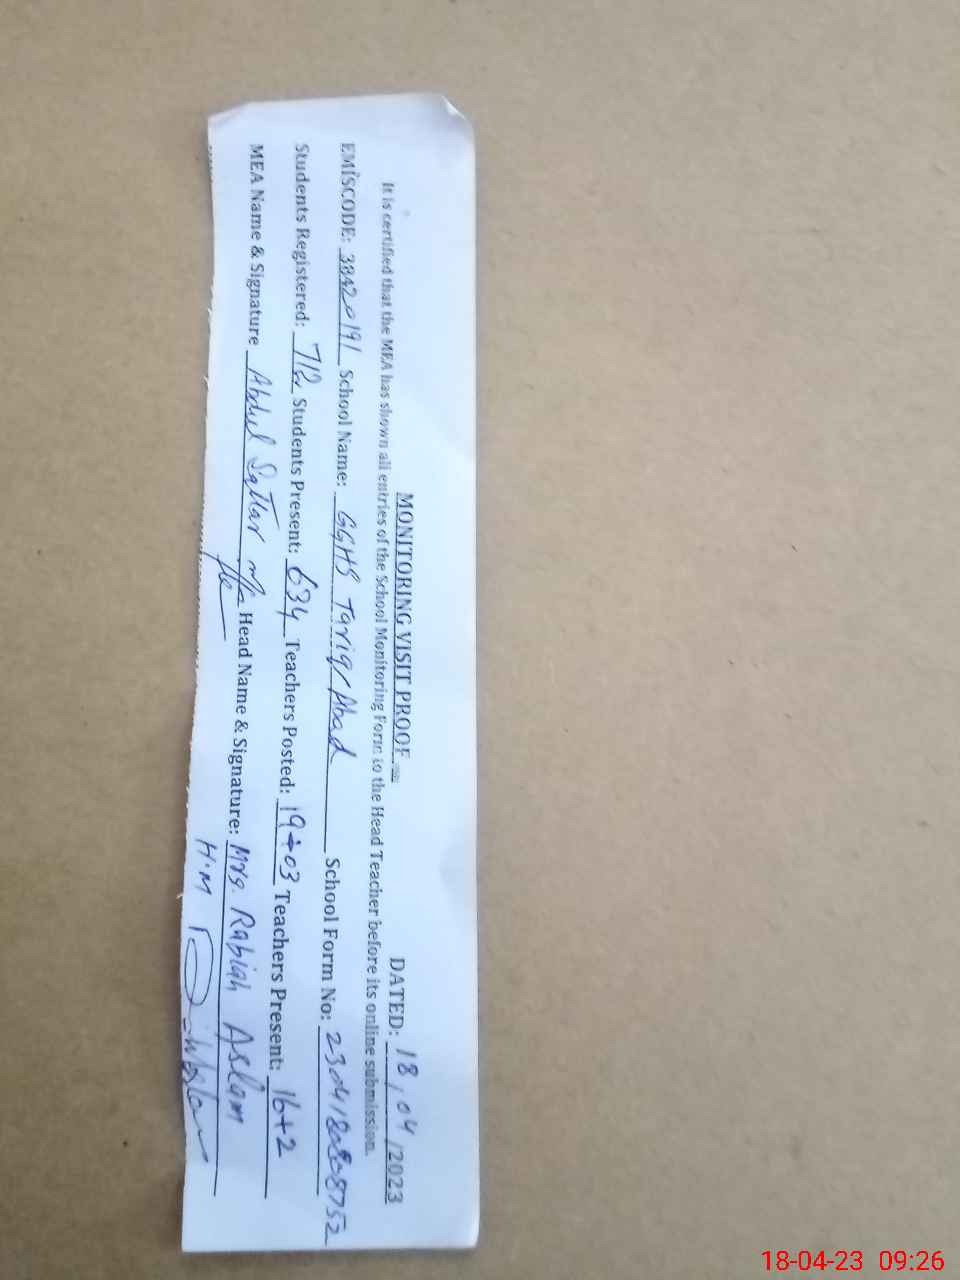 MONITORING VISIT PROOF
DATED: 18/04/2023
It is certified that the MEA has shown all entries of the School Monitoring Form to the Head Teacher before its online submission.
EMISCODE: 38420191 School Name: GGHS Tariq Abad School Form No:
Students Registered: 712 Students Present: 634 Teachers Posted: 19+03 Teachers Present: 16+2
MEA Name & Signature Abdul Sattar Head Name & Signature: Mrs. Rabiah Aslam
H.M
18-04-23 09:26